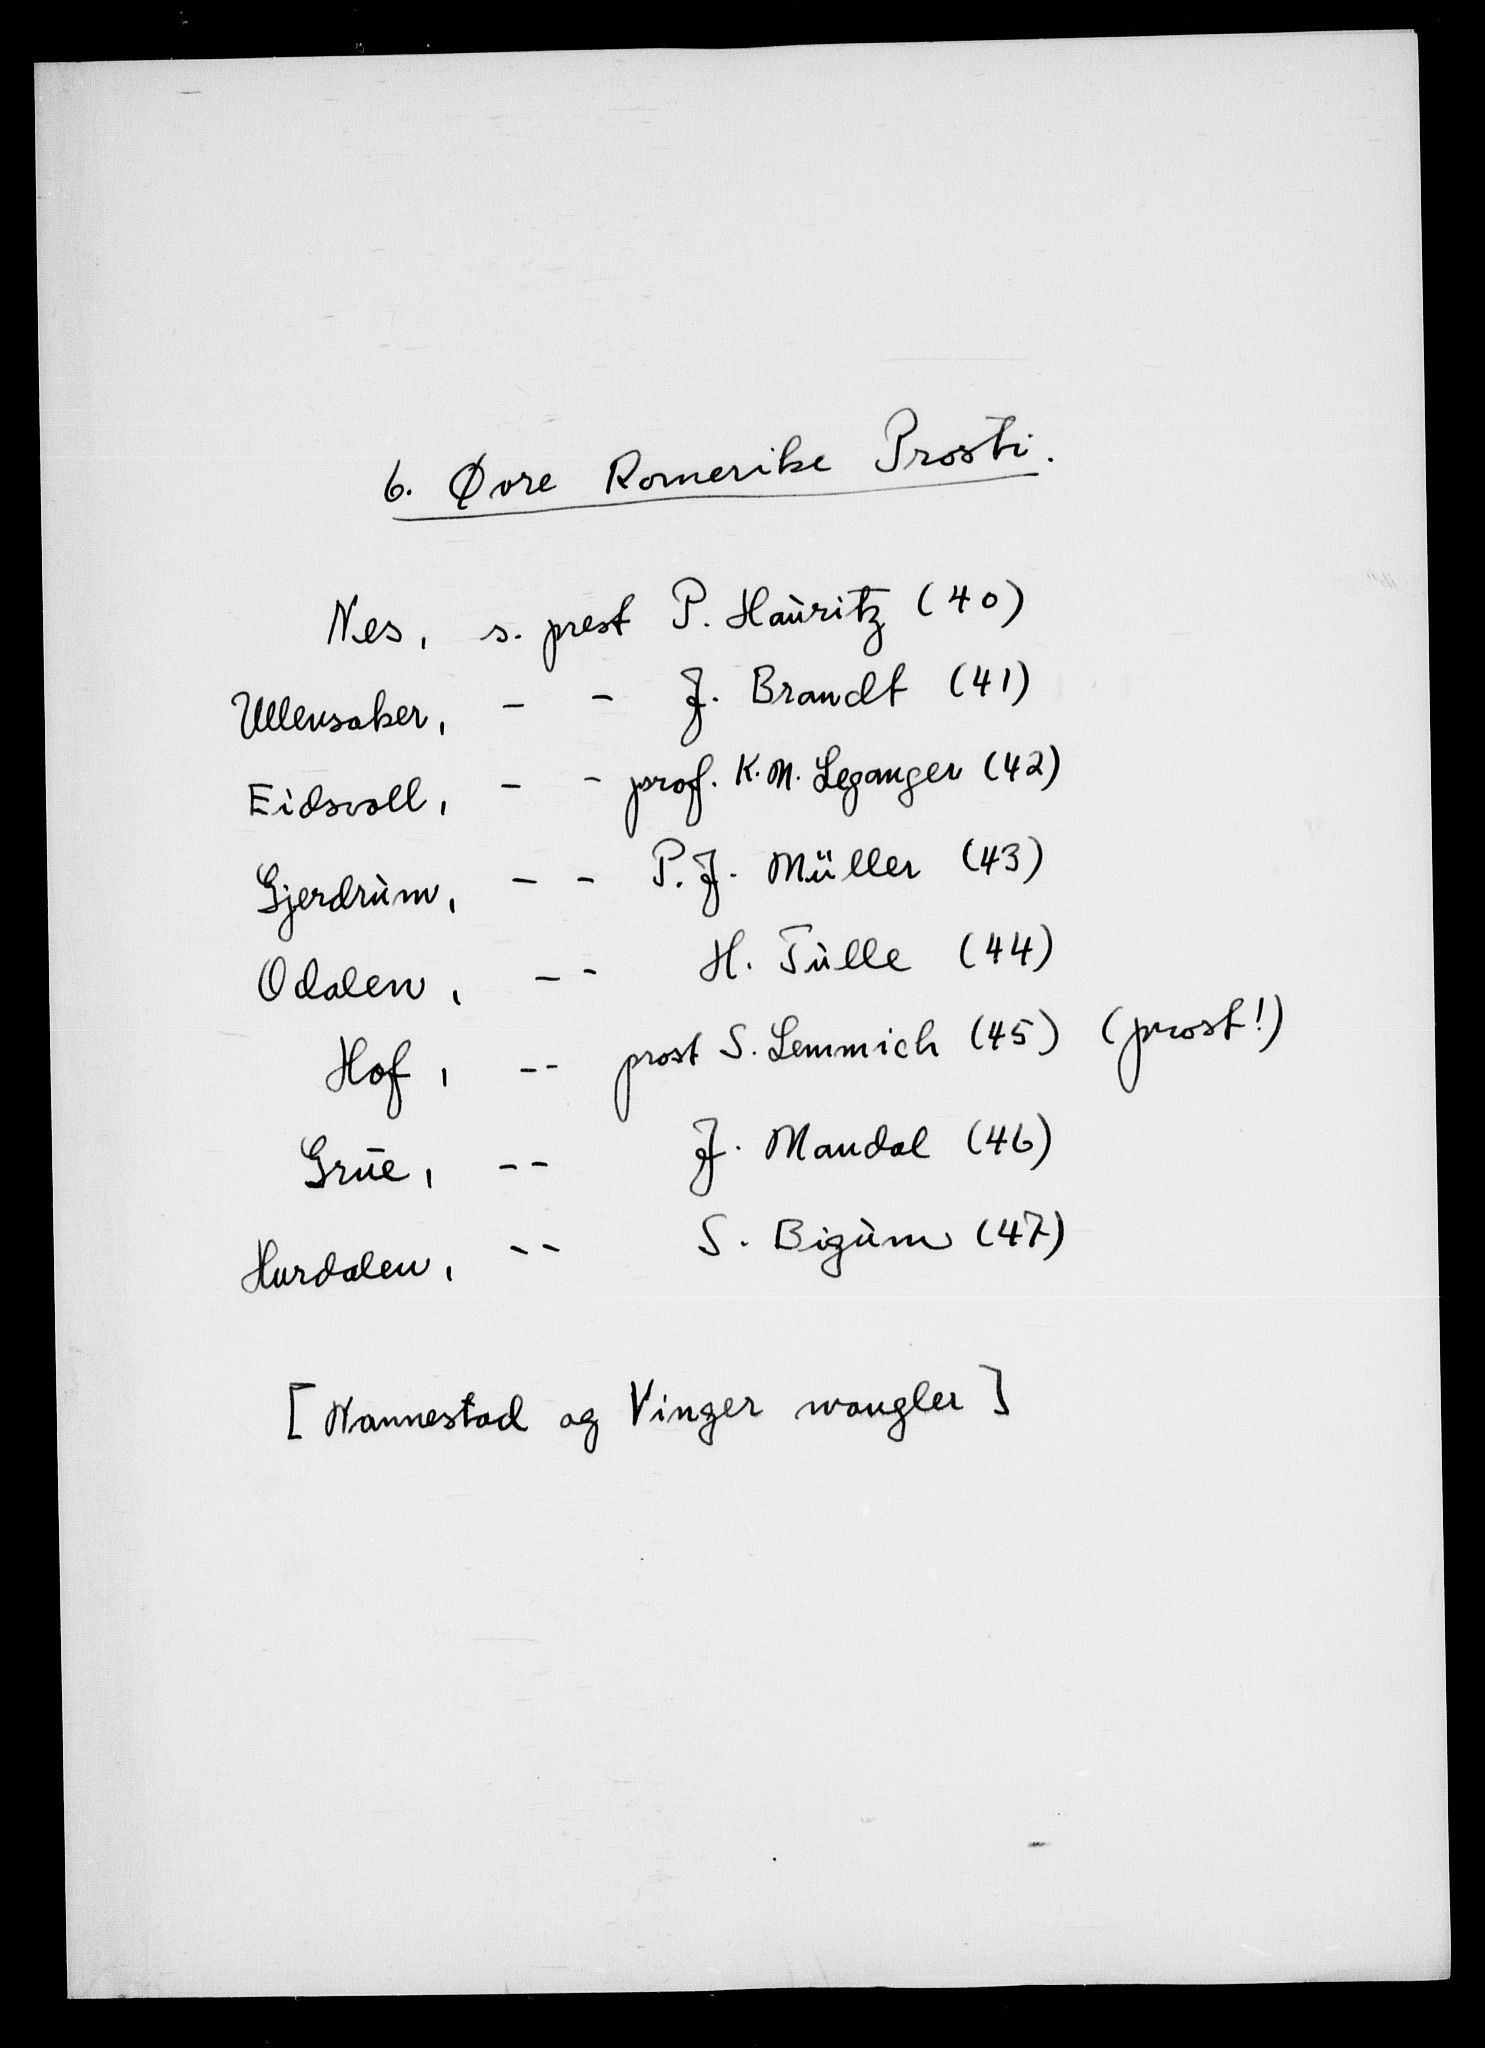 6. Øvre Romerike Prosti.
Nes, s. prest P. Hauritz (40)
Ullensaker, - - J. Brandt (41)
Eidsvoll, - - prof. K.M. Leganger (42)
Gjerdrum, - - P.J. Müller (43)
Odalen, - - H. Tulle (44)
Hof, - - prost S. Lemmich (45) (prost!)
Grue, - - J. Mandal (46)
Hurdalen, - - S. Bigum (47)
[Nannestad og Vinger mangler]